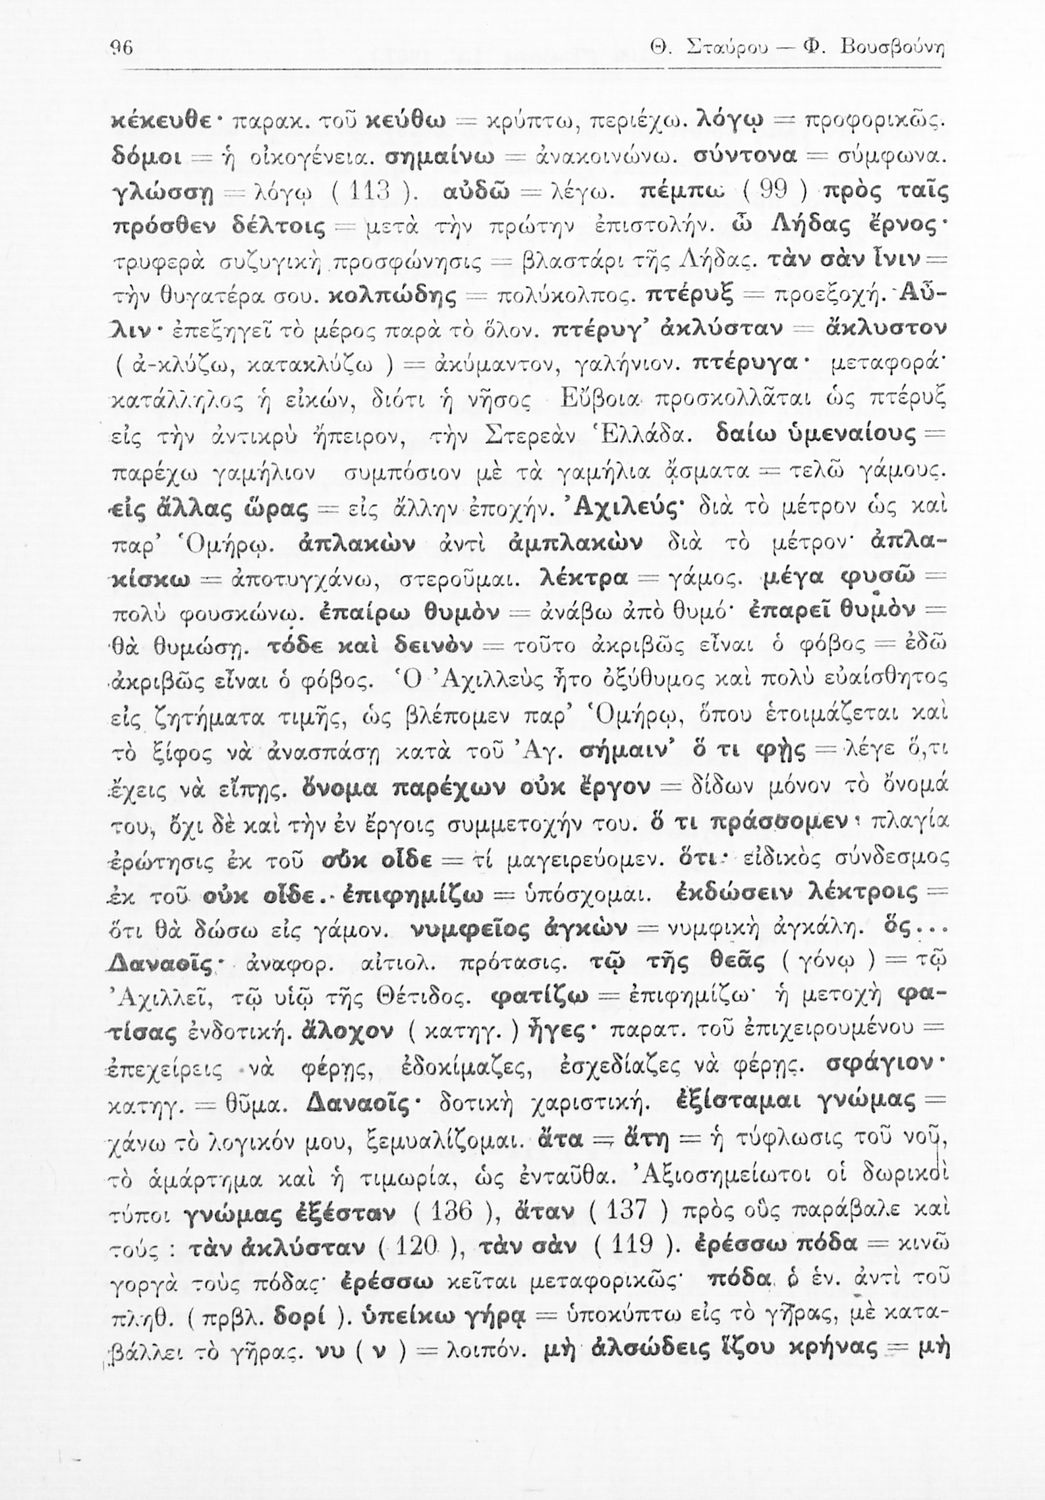 96 Θ. Σταύρου — Φ. Βουσβούνη
κέκευθε· παρακ. τοῦ κεύθω = κρύπτω, περιέχω. λόγῳ = προφορικῶς.
δόμοι = ἡ οἰκογένεια. σημαίνω = ἀνακοινώνω. σύντονα = σύμφωνα.
γλώσσῃ = λόγῳ ( 113 ). αὐδῶ = λέγω. πέμπω ( 99 ) πρὸς ταῖς
πρόσθεν δέλτοις = μετὰ τὴν πρώτην ἐπιστολήν. ὦ Λήδας ἔρνος·
τρυφερὰ συζυγικὴ προσφώνησις = βλαστάρι τῆς Λήδας. τὰν σὰν ἶνιν =
τὴν θυγατέρα σου. κολπώδης = πολύκολπος. πτέρυξ = προεξοχή. Αὖ-
λιν· ἐπεξηγεῖ τὸ μέρος παρὰ τὸ ὅλον. πτέρυγ’ ἀκλύσταν = ἄκλυστον
( ἀ-κλύζω, κατακλύζω ) = ἀκύμαντον, γαλήνιον. πτέρυγα· μεταφορά·
κατάλληλος ἡ εἰκών, διότι ἡ νῆσος Εὔβοια προσκολλᾶται ὡς πτέρυξ
εἰς τὴν ἀντικρὺ ἤπειρον, τὴν Στερεὰν Ἑλλάδα. δαίω ὑμεναίους =
παρέχω γαμήλιον συμπόσιον μὲ τὰ γαμήλια ᾄσματα = τελῶ γάμους.
εἰς ἄλλας ὥρας = εἰς ἄλλην ἐποχήν. Ἀχιλεύς· διὰ τὸ μέτρον ὡς καὶ
παρ’ Ὁμήρῳ. ἀπλακὼν ἀντὶ ἀμπλακὼν διὰ τὸ μέτρον· ἀπλα-
κίσκω = ἀποτυγχάνω, στεροῦμαι. λέκτρα = γάμος. μέγα φυσῶ =
πολὺ φουσκώνω. ἐπαίρω θυμὸν = ἀνάβω ἀπὸ θυμό· ἐπαρεῖ θυμὸν =
θὰ θυμώσῃ. τόδε καὶ δεινὸν = τοῦτο ἀκριβῶς εἶναι ὁ φόβος = ἐδῶ
ἀκριβῶς εἶναι ὁ φόβος. Ὁ Ἀχιλλεὺς ἦτο ὀξύθυμος καὶ πολὺ εὐαίσθητος
εἰς ζητήματα τιμῆς, ὡς βλέπομεν παρ’ Ὁμήρῳ, ὅπου ἑτοιμάζεται καὶ
τὸ ξίφος νὰ ἀνασπάσῃ κατὰ τοῦ Ἀγ. σήμαιν’ ὅ τι φῂς = λέγε ὅ,τι
ἔχεις νὰ εἴπῃς. ὄνομα παρέχων οὐκ ἔργον = δίδων μόνον τὸ ὄνομά
του, ὄχι δὲ καὶ τὴν ἐν ἔργοις συμμετοχήν του. ὅ τι πράσσομεν· πλαγία
ἐρώτησις ἐκ τοῦ οὐκ οἶδε = τί μαγειρεύομεν. ὅτι· εἰδικὸς σύνδεσμος
ἐκ τοῦ οὐκ οἶδε. ἐπιφημίζω = ὑπόσχομαι. ἐκδώσειν λέκτροις =
ὅτι θὰ δώσω εἰς γάμον. νυμφεῖος ἀγκὼν = νυμφικὴ ἀγκάλη. ὅς...
Δαναοῖς· ἀναφορ. αἰτιολ. πρότασις. τῷ τῆς θεᾶς ( γόνῳ ) = τῷ
Ἀχιλλεῖ, τῷ υἱῷ τῆς Θέτιδος. φατίζω = ἐπιφημίζω· ἡ μετοχὴ φα-
τίσας ἐνδοτική. ἄλοχον ( κατηγ. ) ἦγες· παρατ. τοῦ ἐπιχειρουμένου =
ἐπεχείρεις νὰ φέρῃς, ἐδοκίμαζες, ἐσχεδίαζες νὰ φέρῃς. σφάγιον·
κατηγ. = θῦμα. Δαναοῖς· δοτικὴ χαριστική. ἐξίσταμαι γνώμας =
χάνω τὸ λογικόν μου, ξεμυαλίζομαι. ἄτα = ἄτη = ἡ τύφλωσις τοῦ νοῦ,
τὸ ἁμάρτημα καὶ ἡ τιμωρία, ὡς ἐνταῦθα. Ἀξιοσημείωτοι οἱ δωρικοὶ
τύποι γνώμας ἐξέσταν ( 136 ), ἄταν ( 137 ) πρὸς οὓς παράβαλε καὶ
τούς : τὰν ἀκλύσταν ( 120 ), τὰν σὰν ( 119 ). ἐρέσσω πόδα = κινῶ
γοργὰ τοὺς πόδας· ἐρέσσω κεῖται μεταφορικῶς· πόδα ὁ ἑν. ἀντὶ τοῦ
πληθ. ( πρβλ. δορί ). ὑπείκω γήρᾳ = ὑποκύπτω εἰς τὸ γῆρας, μὲ κατα-
βάλλει τὸ γῆρας. νυ ( ν ) = λοιπόν. μὴ ἀλσώδεις ἵζου κρήνας = μὴ